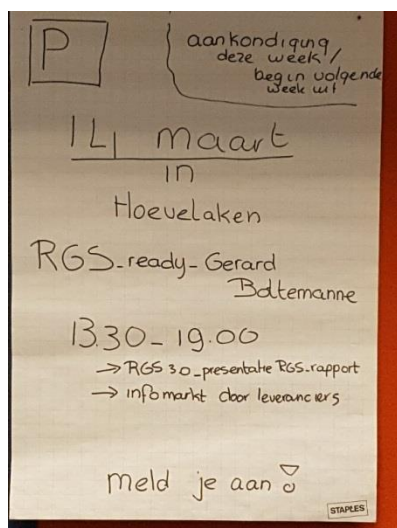 P
aankondiging
deze week/
begin volgende
week uit
14 maart
in
Hoevelaken
RGS-ready- Gerard
Bottemanne
13.30-19.00
→ RGS 3.0-presentatie RGS-rapport
→ infomarkt door leveranciers
meld je aan!
STAPLES